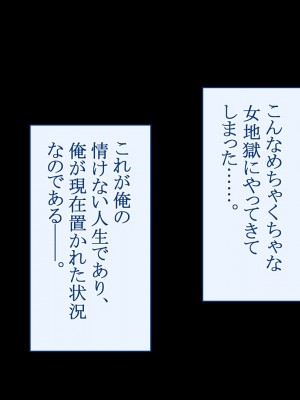 こんなめちゃくちゃな
女地獄にやってきて
しまった……。
これが俺の
情けない人生であり、
俺が現在置かれた状況
なのである――。